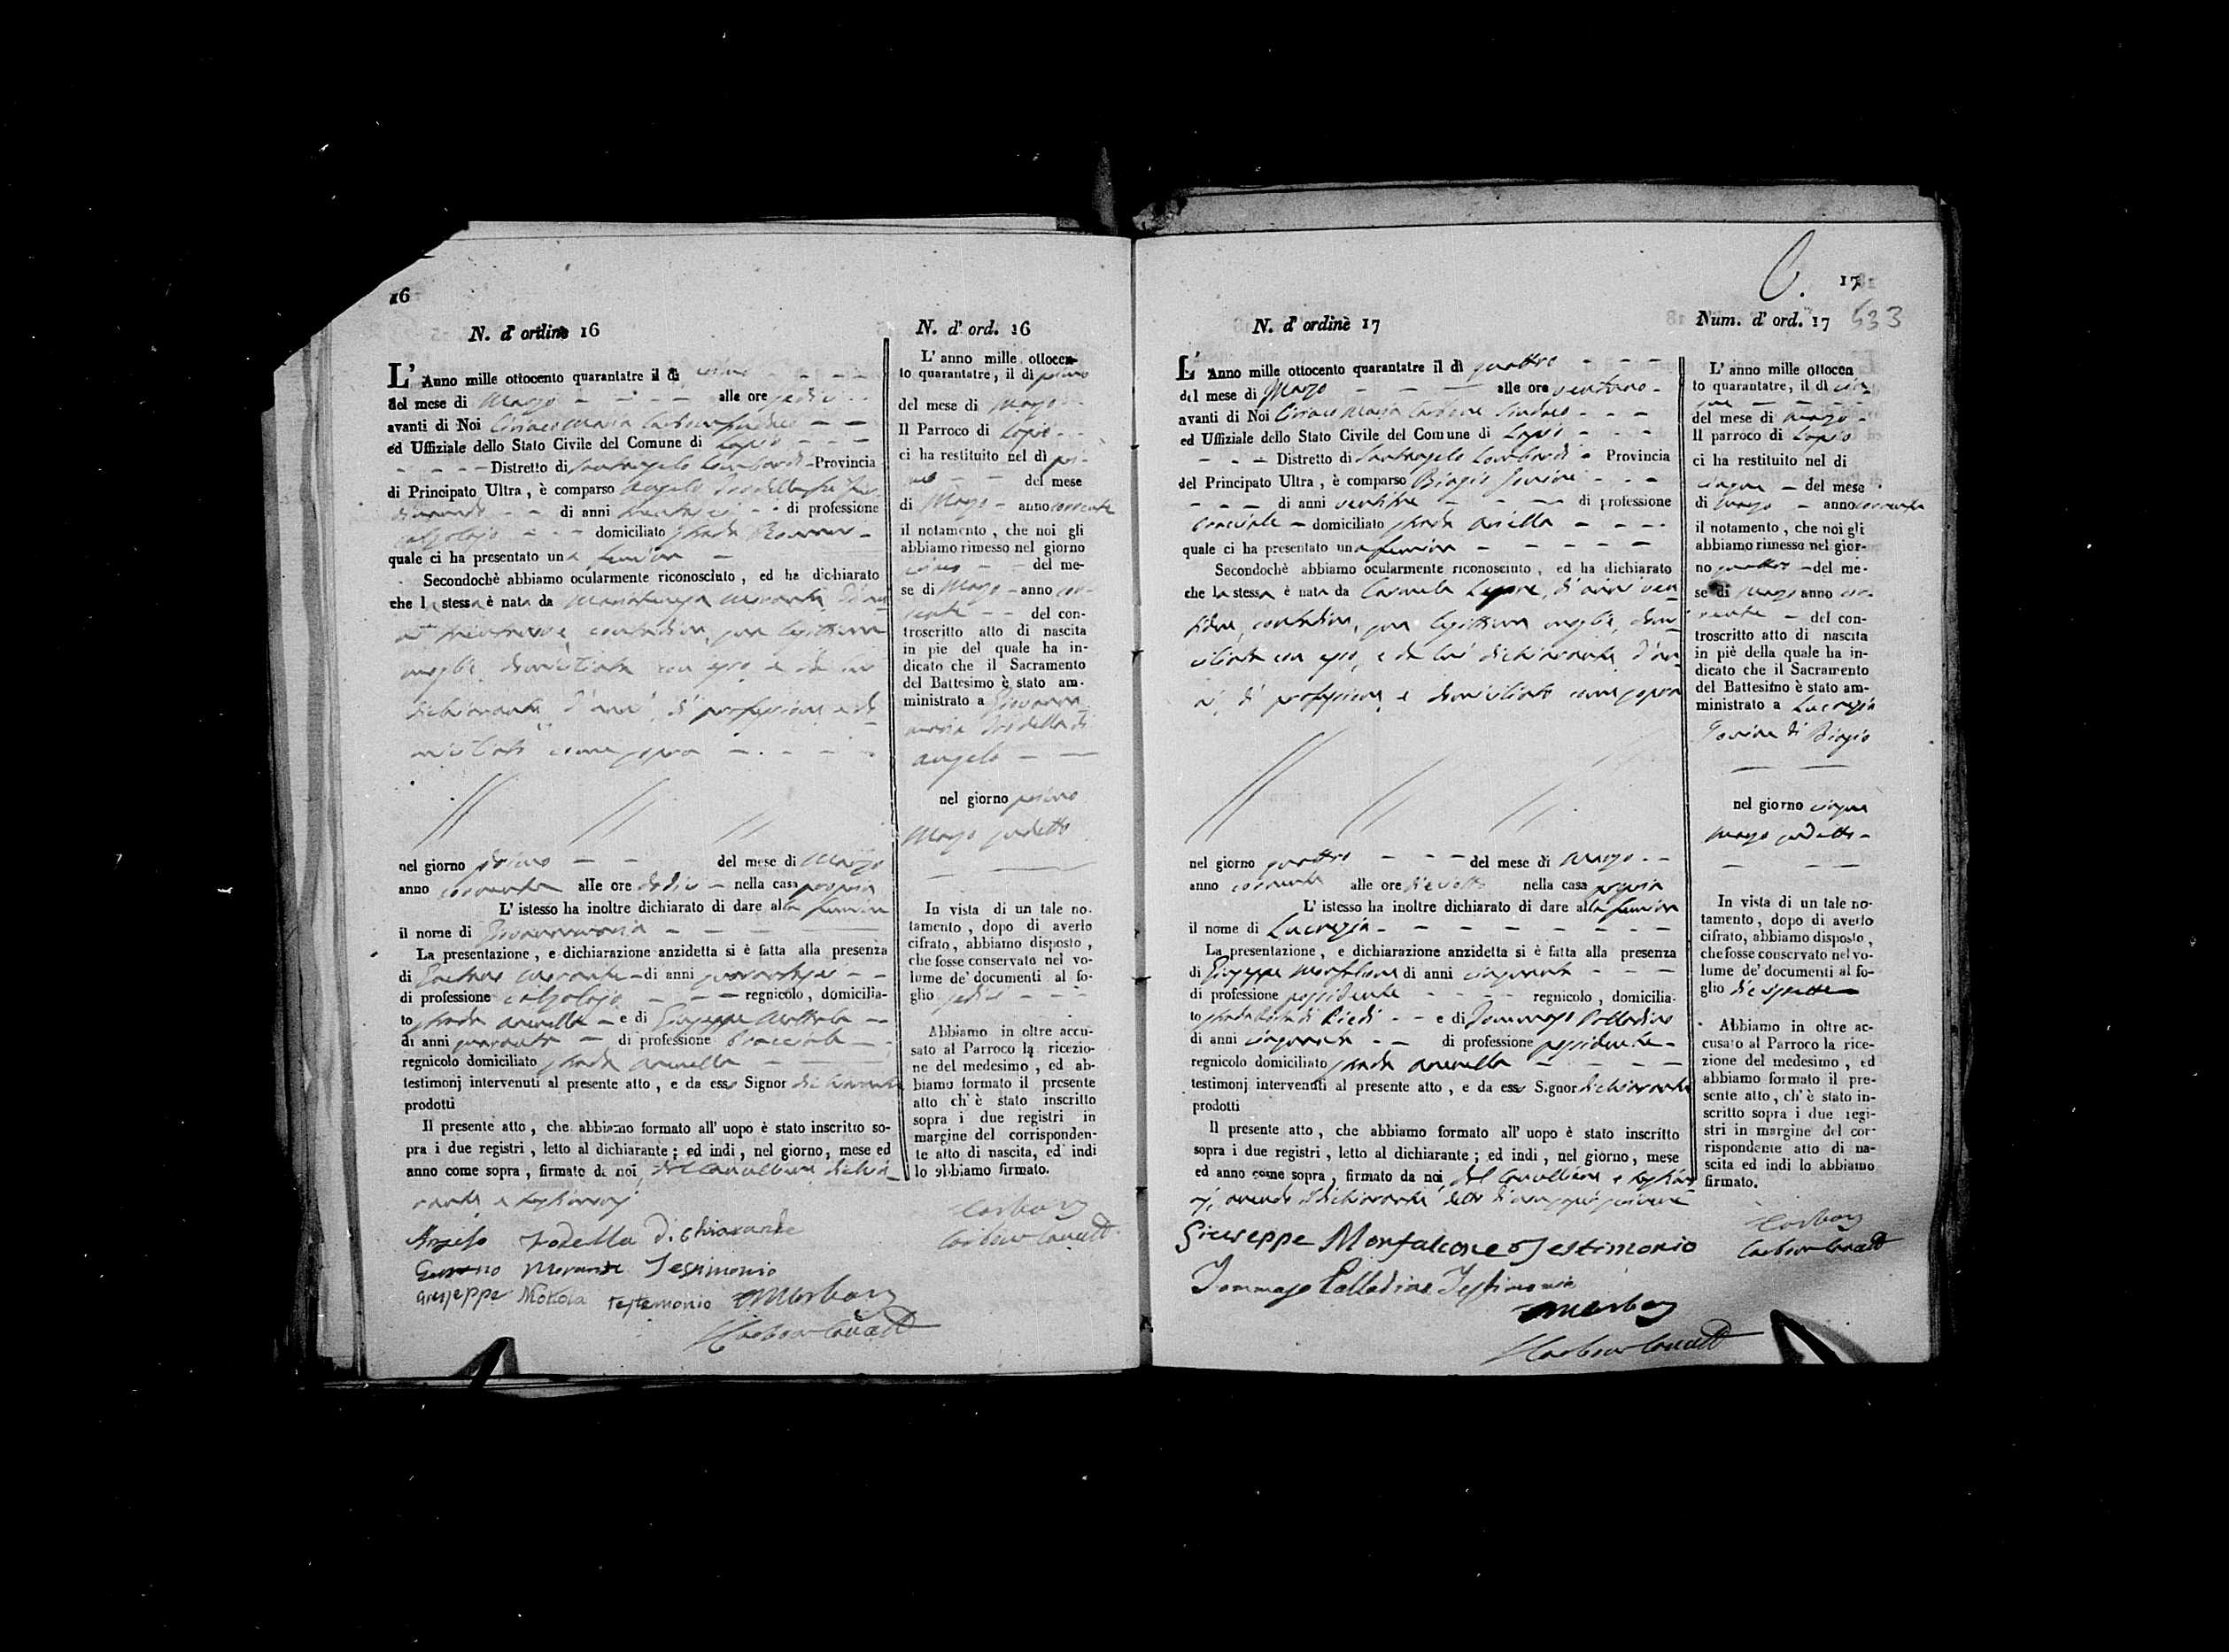 16
N. d' ordine 16
L' Anno mille ottocento quarantatre il dì primo
del mese di Marzo alle ore sedici
avanti di Noi Ciriaco Maria Carbone Sindaco
ed Uffiziale dello Stato Civile del Comune di Lapio
Distretto di Santangelo Lombardi Provincia
di Principato Ultra, è comparso Angelo Iodella fu
di anni trentasei di professione
calzolajo domiciliato strada
quale ci ha presentato una femina
Secondochè abbiamo ocularmente riconosciuto, ed ha dichiarato
che la stessa è nata da Mariateresa Morante, d'an
ni trentanove, contadina, sua legittima
moglie domiciliata con esso, e da lui
dichiarante d'anni, di professione e do
miciliato come sopra
nel giorno primo del mese di Marzo
anno corrente alle ore dodici nella casa propria
L' istesso ha inoltre dichiarato di dare alla femina
il nome di Giovannamaria
La presentazione, e dichiarazione anzidetta si è fatta alla presenza
di Gaetano Morante di anni quarantasei
di professione calzolajo regnicolo, domicilia-
to strada Arenella e di Giuseppe Mottola
di anni quaranta di professione bracciale
regnicolo domiciliato strada Arenella
testimonj intervenuti al presente atto, e da esso Signor dichiarante
prodotti
Il presente atto, che abbiamo formato all' uopo è stato inscritto so-
pra i due registri, letto al dichiarante; ed indi, nel giorno, mese ed
anno come sopra, firmato da noi, dal Cancelliere dichia
rante e testimonj
Angelo Iodella dichiarante
Gaetano Morante Testimonio
Giuseppe Motola testemonio
N. d' ord. 16
L' anno mille ottocen-
to quarantatre, il dì primo
del mese di Marzo
Il Parroco di Lapio
ci ha restituito nel dì pri-
mo del mese
di Marzo anno corrente
il notamento, che noi gli
abbiamo rimesso nel giorno
primo del me-
se di Marzo anno cor-
rente del con-
troscritto atto di nascita
in piè del quale ha in-
dicato che il Sacramento
del Battesimo è stato am-
ministrato a Giovanna
maria Iodella di
Angelo
nel giorno primo
Marzo sudetto
In vista di un tale no-
tamento, dopo di averlo
cifrato, abbiamo disposto,
che fosse conservato nel vo-
lume de' documenti al fo-
glio sedici
Abbiamo in oltre accu-
sato al Parroco la ricezio-
ne del medesimo, ed ab-
biamo formato il presente
atto ch' è stato inscritto
sopra i due registri in
margine del corrisponden-
te atto di nascita, ed indi
lo abbiamo firmato.
Carbone
17
533
N. d' ordinè 17
L' Anno mille ottocento quarantatre il dì quattro
del mese di Marzo alle ore ventuno
avanti di Noi Ciriaco Maria Carbone Sindaco
ed Uffiziale dello Stato Civile del Comune di Lapio
Distretto di Santangelo Lombardi Provincia
del Principato Ultra, è comparso Biagio Iovine
di anni ventitre di professione
bracciale domiciliato strada Airella
quale ci ha presentato una femina
Secondochè abbiamo ocularmente riconosciuto, ed ha dichiarato
che la stessa è nata da Carmela Lepore, d'anni ven
contadina, sua legittima moglie, domi
ciliata con esso, e da lui dichiarante, d'an
ni, di professione e domiciliato come sopra
nel giorno quattro del mese di Marzo
anno corrente alle ore dieciotto nella casa propria
L' istesso ha inoltre dichiarato di dare alla femina
il nome di Lucrezia
La presentazione, e dichiarazione anzidetta si è fatta alla presenza
di Giuseppe Monfalcone di anni cinquanta
di professione possidente regnicolo, domicilia-
to strada di Piedi e di Tommaso Palladino
di anni cinquanta di professione possidente
regnicolo domiciliato strada Arenella
testimonj intervenuti al presente atto, e da esso Signor dichiarante
prodotti
Il presente atto, che abbiamo formato all' uopo è stato inscritto
sopra i due registri, letto al dichiarante; ed indi, nel giorno, mese
ed anno come sopra, firmato da noi, dal Cancelliere e testimo
nj, avendo il dichiarante detto di non saper scrivere
Giuseppe Monfalcone Testimonio
Tommaso Palladino Testimonio
Num. d' ord. 17
L' anno mille ottocen
to quarantatre, il dì cin-
que
del mese di Marzo
Il parroco di Lapio
ci ha restituito nel di
cinque del mese
di Marzo anno corrente
il notamento, che noi gli
abbiamo rimesso nel gior-
no quattro del me-
se di Marzo anno cor-
rente del con-
troscritto atto di nascita
in piè della quale ha in-
dicato che il Sacramento
del Battesimo è stato am-
ministrato a Lucrezia
Iovine di Biagio
nel giorno cinque
Marzo sudetto
In vista di un tale no-
tamento, dopo di averlo
cifrato, abbiamo disposto,
che fosse conservato nel vo-
lume de' documenti al fo-
glio diecisette
Abbiamo in oltre ac-
cusato al Parroco la rice-
zione del medesimo, ed
abbiamo formato il pre-
sente atto, ch' è stato in-
scritto sopra i due regi-
stri in margine del cor-
rispondente atto di na-
scita ed indi lo abbiamo
firmato.
Carbone